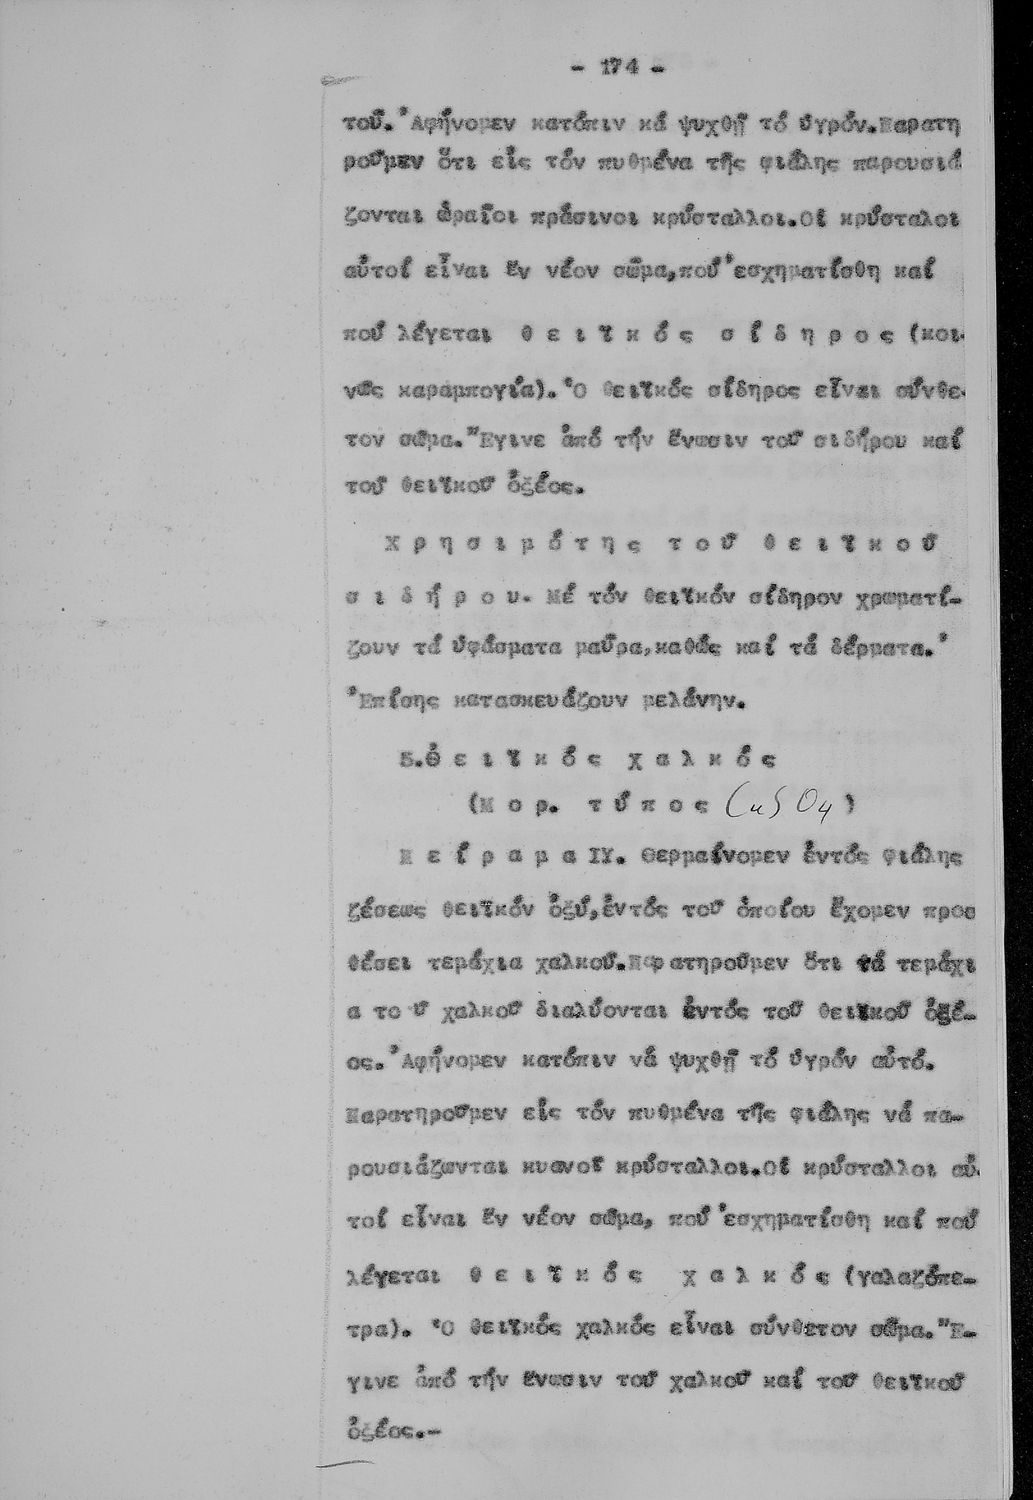 - 174 -
τοῦ. Ἀφήνομεν κατόπιν κά ψυχθῇ τό ὑγρόν. Παρατη
ροῦμεν ὅτι εἰς τόν πυθμένα τῆς φιάλης παρουσιά
ζονται ὡραῖοι πράσινοι κρύσταλλοι. Οἱ κρύσταλοι
αὐτοί εἶναι ἕν νέον σῶμα, πού ἐσχηματίσθη καί
πού λέγεται θ ε ι ϊ κ ό ς σ ί δ η ρ ο ς (κοι-
νῶς καραμπογιά). Ὁ θειϊκός σίδηρος εἶναι σύνθε-
τον σῶμα. Ἔγινε ἀπό τήν ἕνωσιν τοῦ σιδήρου καί
τοῦ θειϊκοῦ ὀξέος.
Χ ρ η σ ι μ ό τ η ς τ ο ῦ θ ε ι ϊ κ ο ῦ
σ ι δ ή ρ ο υ. Μέ τόν θειϊκόν σίδηρον χρωματί-
ζουν τά ὑφάσματα μαῦρα, καθώς καί τά δέρματα.'
Ἐπίσης κατασκευάζουν μελάνην.
δ. Θ ε ι ϊ κ ό ς χ α λ κ ό ς
(Μ ο ρ. τ ύ π ο ς CuSO4)
Π ε ί ρ α μ α IY. Θερμαίνομεν ἐντός φιάλης
ζέσεως θειϊκόν ὀξύ, ἐντός τοῦ ὁποίου ἔχομεν προσ
θέσει τεμάχια χαλκοῦ. Παρατηροῦμεν ὅτι τά τεμάχι
α το ῦ χαλκοῦ διαλύονται ἐντός τοῦ θειϊκοῦ ὀξέ-
ος. Ἀφήνομεν κατόπιν νά ψυχθῇ τό ὑγρόν αὐτό.
Παρατηροῦμεν εἰς τόν πυθμένα τῆς φιάλης νά πα-
ρουσιάζωνται κυανοῖ κρύσταλλοι. Οἱ κρύσταλλοι αὐ-
τοί εἶναι ἕν νέον σῶμα, πού ἐσχηματίσθη καί πού
λέγεται θ ε ι ϊ κ ό ς χ α λ κ ό ς (γαλαζόπε-
τρα). Ὁ θειϊκός χαλκός εἶναι σύνθετον σῶμα. Ἔ-
γινε ἀπό τήν ἕνωσιν τοῦ χαλκοῦ καί τοῦ θειϊκοῦ
ὀξέος.-